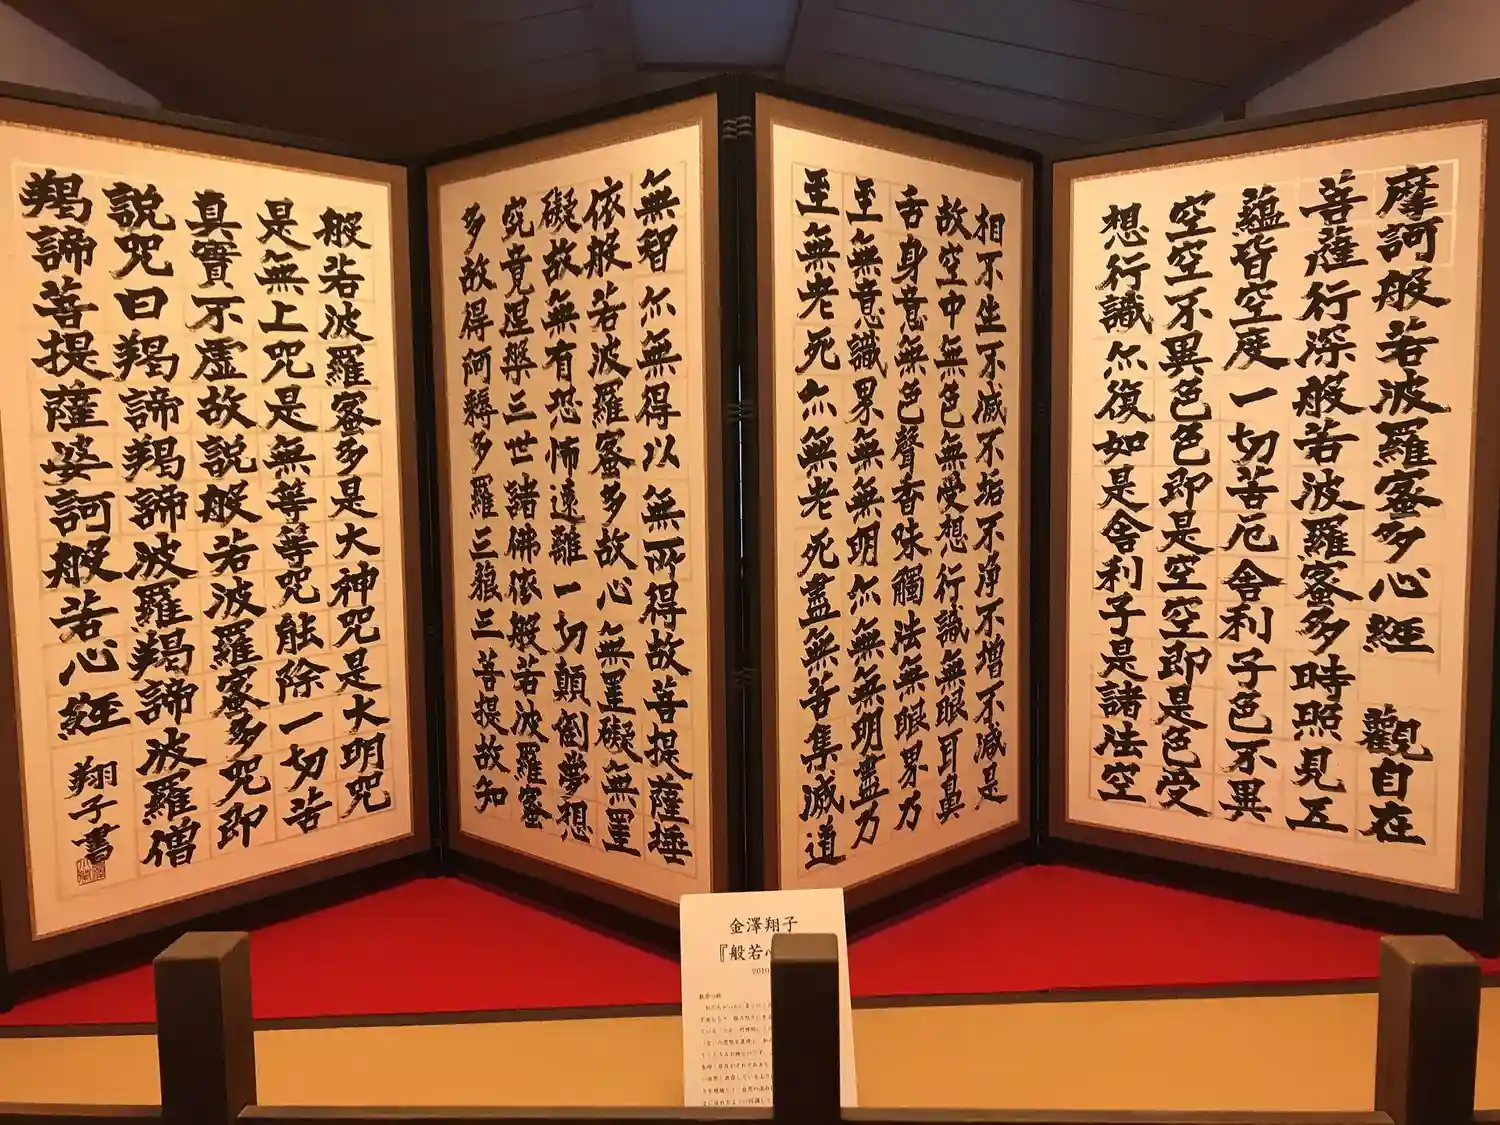 摩訶般若波羅蜜多心經 觀自在
菩薩行深般若波羅蜜多時照見五
蘊皆空度一切苦厄舎利子色不異
空空不異色色即是空空即是色受
想行識亦復如是舎利子是諸法空
相不生不滅不垢不浄不増不減是
故空中無色無受想行識無眼耳鼻
舌身意無色聲香味觸法無眼界乃
至無意識界無無明亦無無明盡乃
至無老死亦無老死盡無苦集滅道
無智亦無得以無所得故菩提薩埵
依般若波羅蜜多故心無罣礙無罣
礙故無有恐怖遠離一切顛倒夢想
究竟涅槃三世諸佛依般若波羅蜜
多故得阿耨多羅三藐三菩提故知
般若波羅蜜多是大神咒是大明咒
是無上咒是無等等咒能除一切苦
真實不虛故説般若波羅蜜多咒即
説咒曰羯諦羯諦波羅羯諦波羅僧
羯諦菩提薩婆訶般若心經 翔子書
金澤翔子
『般若心
2019